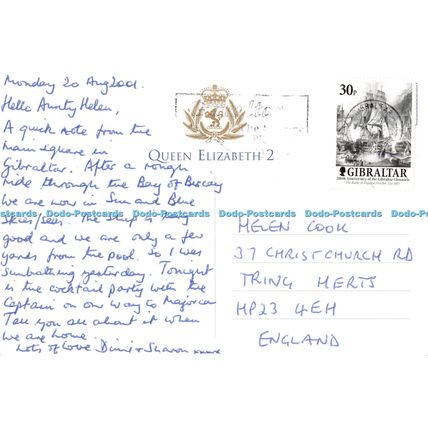 Monday 20 Aug 2001.
Hello Aunty Helen,
A quick note from the
main square in
Gibraltar. After a rough
ride through the Bay of Biscay
we are now in Sun and Blue
Skies/seas. The ship is very
good and we are only a few
yards from the pool. So I was
Sunbathing yesterday. Tonight
is the cocktail party with the
Captain on our way to Majorca
Tell you all about it when
we are home.
Lots of Love + Sharon xxxxx
QUEEN ELIZABETH 2
30p
GIBRALTAR
200th Anniversary of the Gibraltar Chronicle
Dodo-Postcards Dodo-Postcards Dodo-Postcards Dodo-Postcards Dodo-Postcards
HELEN COOK
37 CHRISTCHURCH RD
TRING HERTS
HP23 4EH
ENGLAND